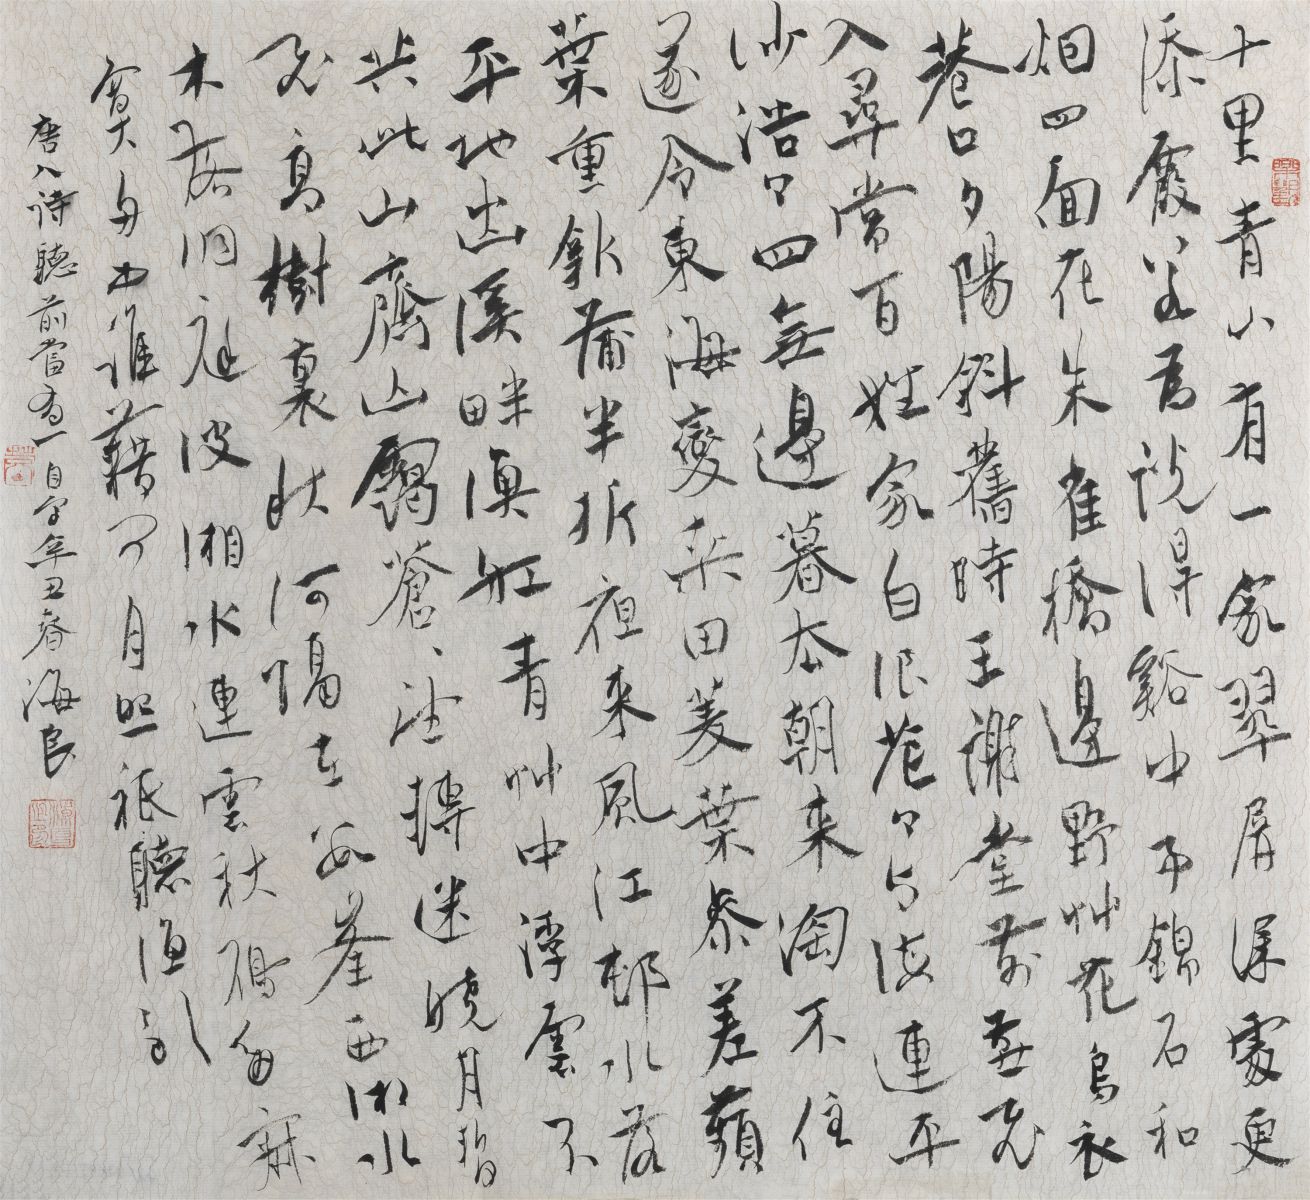 十里青山有一家翠屏深處更
添霞若爲説得谿中事錦石和
烟四面花朱雀橋邊野艸花烏衣
巷口夕陽斜舊時王謝堂前燕飛
入尋常百姓家白浪茫々与海連平
沙浩々四無邊暮去朝來淘不住
遂令東海變桑田菱葉參差蘋
葉重新蒲半折夜來風江邨水落
平地出溪畔漁舡青艸中浮雲不
共此山齊山靄蒼々望轉迷曉月暫
飛高樹裏秋河隔在數峯西湘水
木落洞庭波湘水連雲秋雁多寂
寞舟中誰藉問月照秖聽漁歌
唐人詩聽前當有一自字辛丑春海良